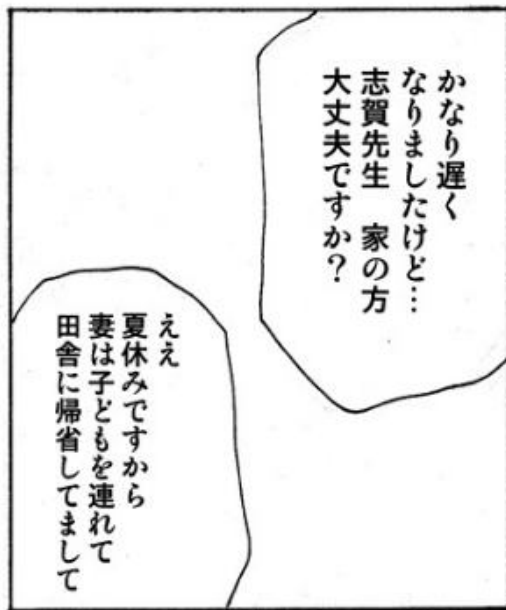 かなり遅く
なりましたけど…
志賀先生　家の方
大丈夫ですか？
ええ
夏休みですから
妻は子どもを連れて
田舎に帰省してまして